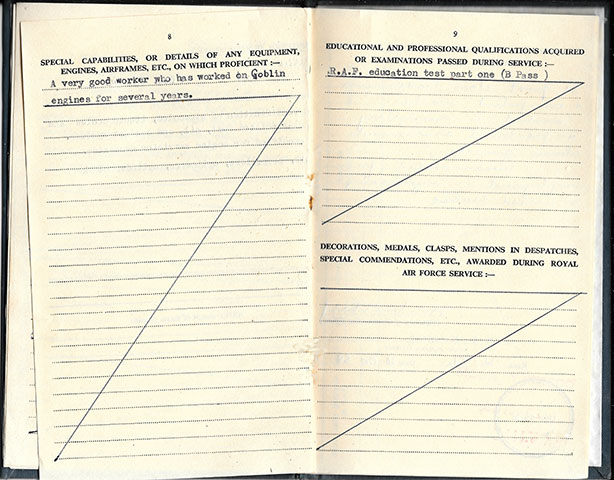 8
SPECIAL CAPABILITIES, OR DETAILS OF ANY EQUIPMENT,
ENGINES, AIRFRAMES, ETC., ON WHICH PROFICIENT :—
A very good worker who has worked on Goblin
engines for several years.
9
EDUCATIONAL AND PROFESSIONAL QUALIFICATIONS ACQUIRED
OR EXAMINATIONS PASSED DURING SERVICE :—
R.A.F. education test part one (B Pass )
DECORATIONS, MEDALS, CLASPS, MENTIONS IN DESPATCHES,
SPECIAL COMMENDATIONS, ETC., AWARDED DURING ROYAL
AIR FORCE SERVICE :—